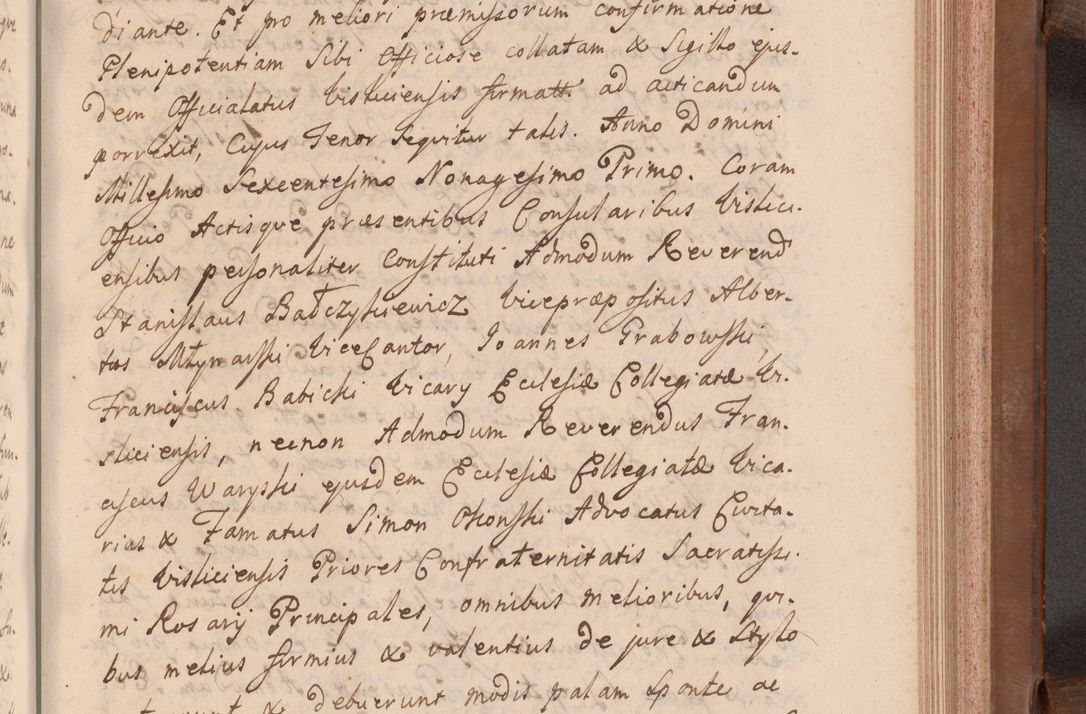 diante. Et pro meliori præmissorum confirmatione
Plenipotentiam Sibi Officiose collatam & Sigillo ejus-
dem Officialatus Visliciensis firmatt. ad acticandum
porrexit, Cujus Tenor Sequitur talis. Anno Domini
Millesimo Sexcentesimo Nonagesimo Primo. Coram
Officio Actisque præsentibus Consularibus Vislici-
ensibus personaliter constituti Admodum Reverend
Stanislaus Bałczykiewicz Vicepræpositus Alber-
tus Młynarski ViceCantor, Joannes Grabowski,
Franciscus Babicki Vicary Ecclesiæ Collegiatæ Vi-
sliciensis, necnon Admodum Reverendus Fran-
ciscus Waryski ejusdem Ecclesiæ Collegiatæ Vica-
rius & Famatus Simon Okonski Advocatus Civita-
tis Visliciensis Priores Confraternitatis Sacratissi-
mi Rosarij Principales, omnibus melioribus, qui-
bus melius firmius & valentius de jure & Stylo
& debuerunt modis palam Sponte ac